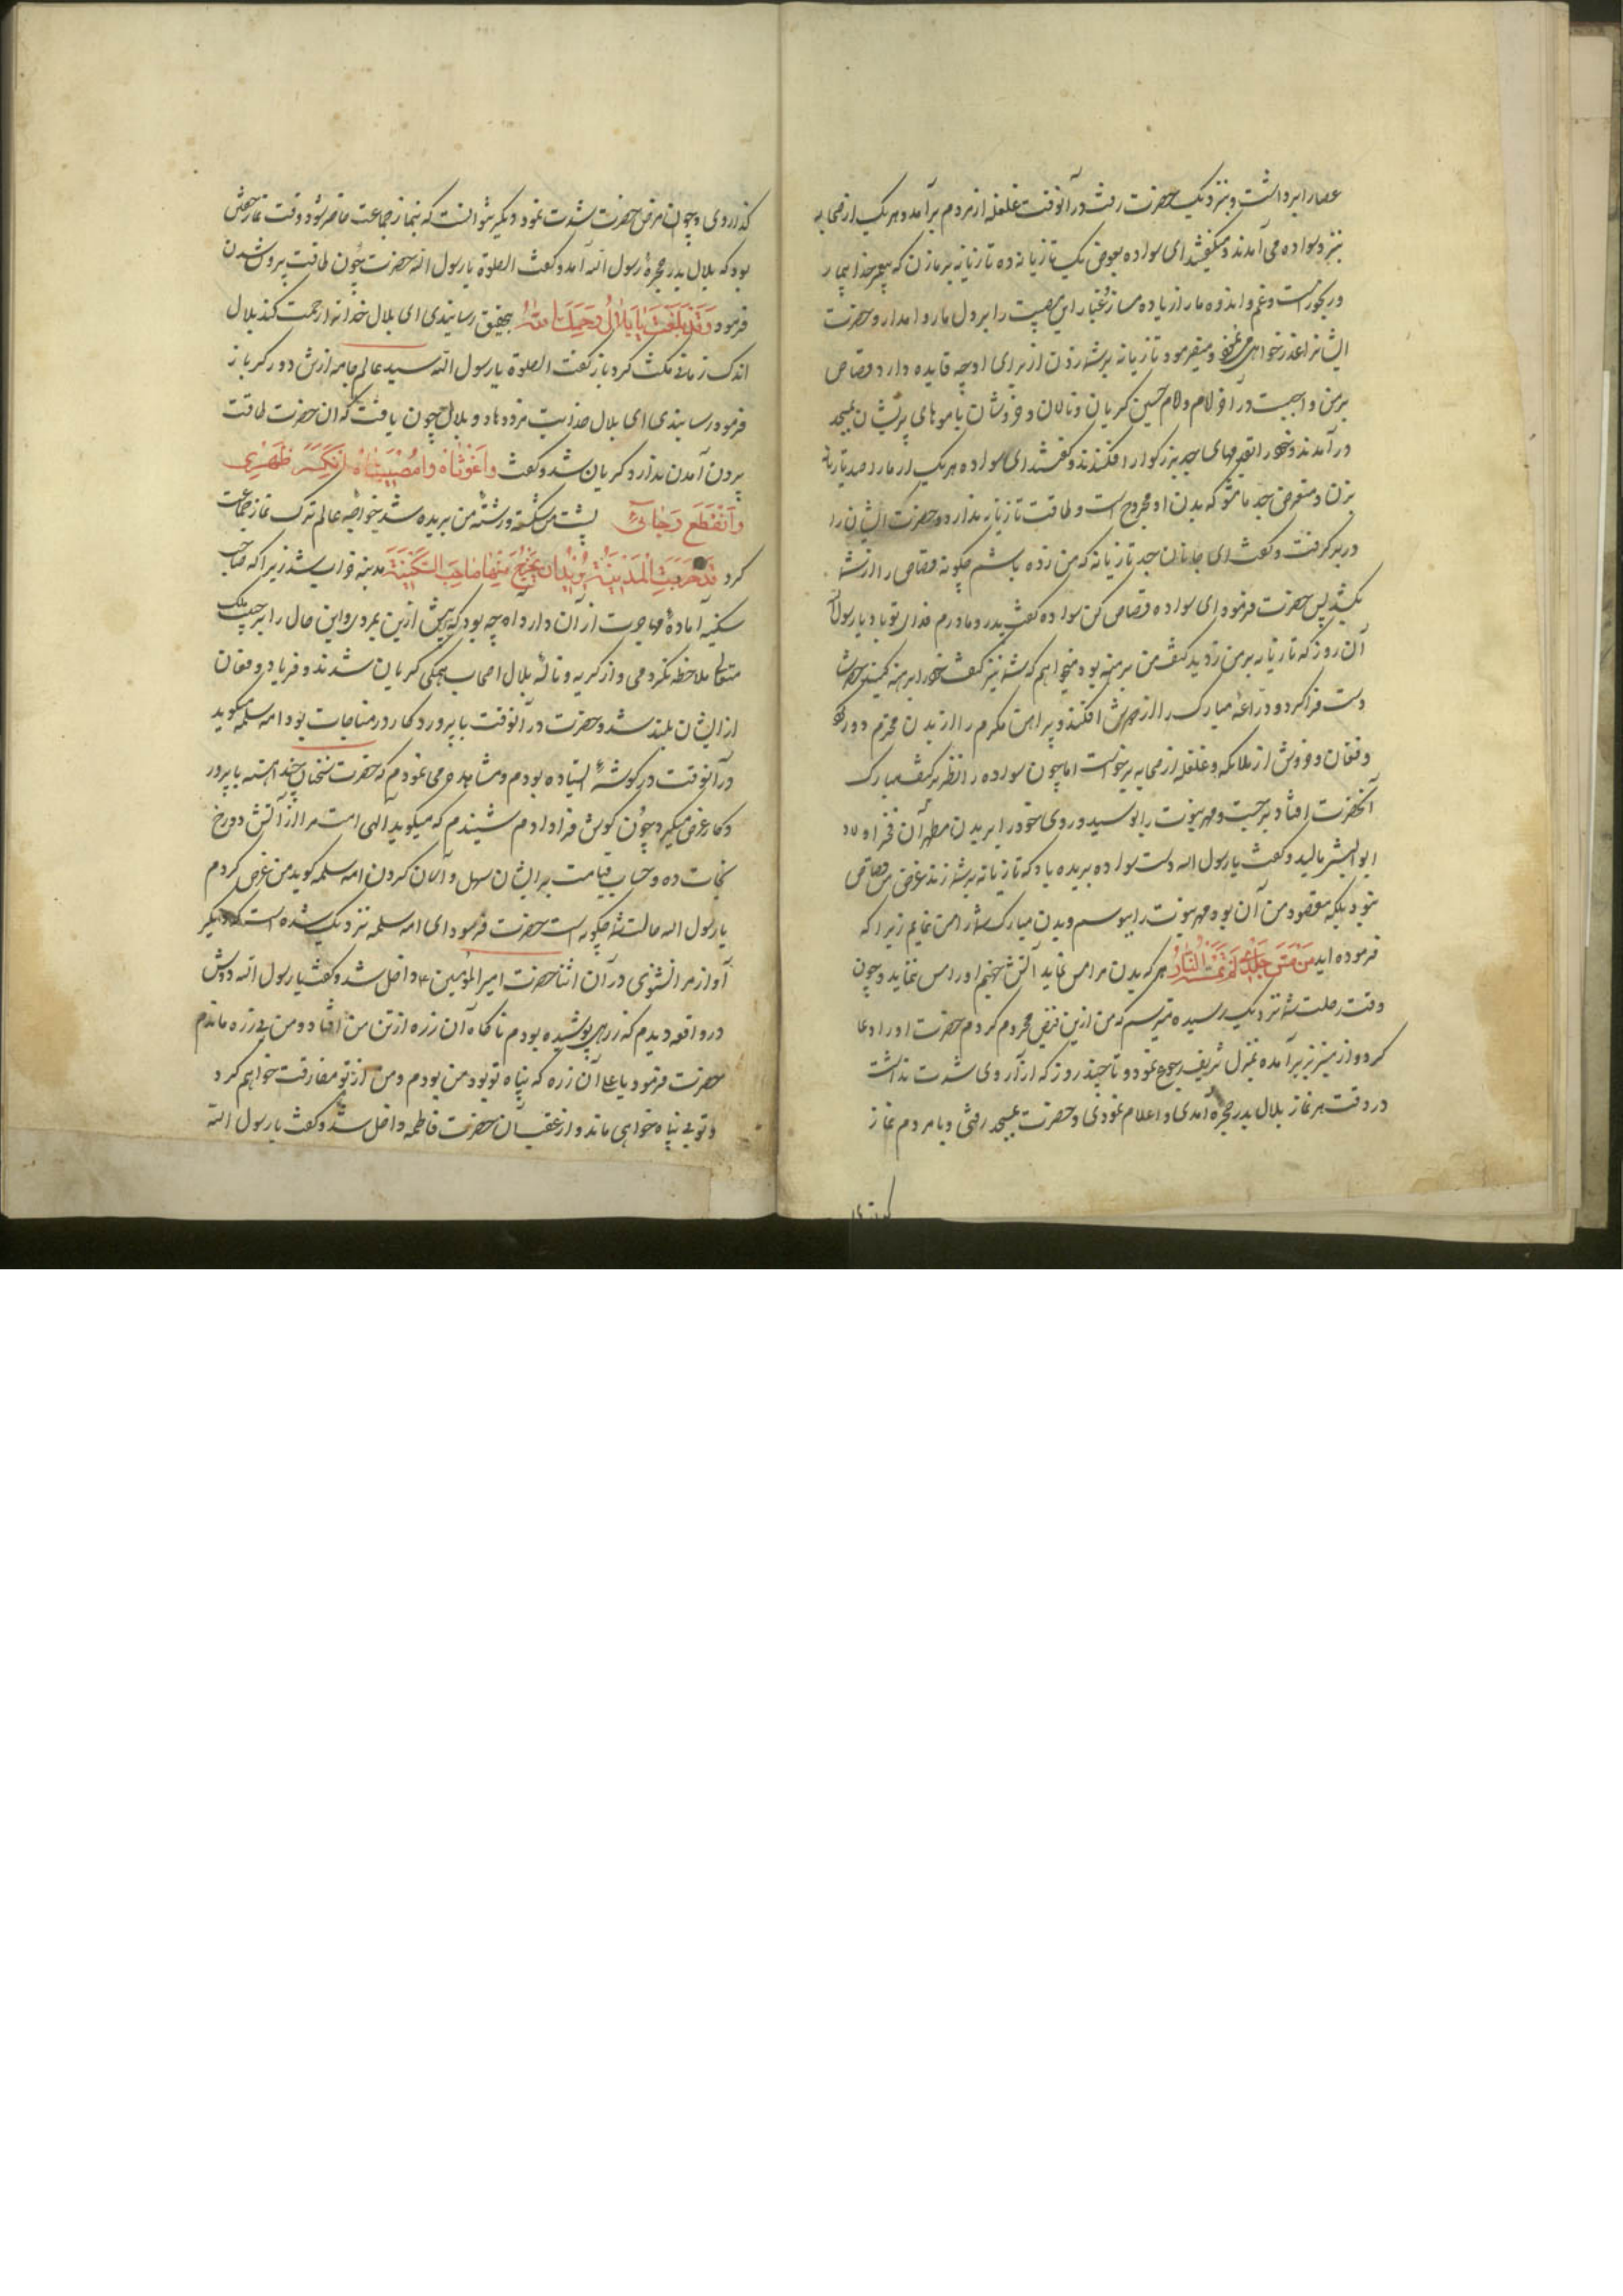 عصا را برداشت و بنزدیک حضرت رفت در آنوقت غلغله از مردم برآمد و هر یک از صحابه
بنزد سواده می آمدند و میگفتند ای سواده بعوض یک تازیانه ده تازیانه بر ما زن که پیغمبر خدا بیمار
و رنجور است و غم و اندوه ما را زیاده مساز و غبار این مصیبت را بر دل ما روا مدار و حضرت
ایشانرا عذر خواهی می نمود و میفرمود تازیانه بر شما زدن از برای او چه فایده دارد قصاص
بر من واجبست در آخر امام و امام حسین گریان و نالان و خروشان با موهای پریشان بمسجد
درآمدند و خود را بقدمهای جد بزرگوار افکندند و گفتند ای سواده هر یک از ما را صد تازیانه
بزن و متعرض جد ما مشو که بدن او مجروح است و طاقت تازیانه ندارد و حضرت ایشان را
در بر گرفت و گفت ای جانان جد تازیانه که من زده باشم چگونه قصاص را از شما
بکشند پس حضرت فرمود ای سواده قصاص کن سواده گفت پدر و مادرم فدای تو باد یا رسول الله
آن روز که تازیانه بر من زدید کتف من برهنه بود میخواهم که شما نیز کتف خود را برهنه کنید حضرت
دست فرا کرد و دراعه مبارک را از دوش افکند و پیراهن مکرم را از بدن محترم دور کرد
و فغان و خروش از ملائکه و غلغله از صحابه برخواست اما چون سواده را نظر بر کتف مبارک
آنحضرت افتاد برجست و مهر نبوت را بوسید و روی خود را بر بدن مطهر آن فخر اولاد
ابوالبشر مالید و گفت یا رسول الله دست سواده بریده باد که تازیانه بر شما زند غرض من قصاص
نبود بلکه مقصود من آن بود مهر نبوت را ببوسم و بدن مبارک شما را مس نمایم زیرا که
فرموده اید مَن مَسَّ جِلدی لَم تَمَسَّهُ النّارُ هر که بدن مرا مس نماید آتش جهنم او را مس ننماید و چون
وقت رحلت شما نزدیک رسیده ترسیدم که من ازین فیض محروم گردم حضرت او را دعا
کرد و از منبر بزیر آمده بمنزل شریف رجوع نمود و تا چند روز که آزار وی شدت نداشت
در وقت هر نماز بلال بدر حجره آمدی و اعلام نمودی و حضرت بمسجد رفتی و با مردم نماز
گذاردی
گذاردی و چون مرض حضرت شدت نمود دیگر نتوانست که بنماز جماعت حاضر شود وقت نماز خفتن
بود که بلال بدر حجره رسول الله آمد و گفت الصلوة یا رسول الله حضرت چون طاقت بیرون شدن
فرمود وَقَد بَلَّغتَ یا بِلالُ رَحِمَکَ اللهُ بتحقیق رسانیدی ای بلال خدا ترا رحمت کند بلال
اندک زمانی مکث کرد باز گفت الصلوة یا رسول الله سید عالم جامه از سر دور کرد باز
فرمود رسانیدی ای بلال خدایت مزد دهاد و بلال چون یافت که آن حضرت طاقت
بیرون آمدن ندارد گریان شد و گفت واغَوثاه وامُصیبتاه اِنکَسَرَ ظَهری
وَانقَطَعَ رَجائی پشت من شکسته و رشته من بریده شد خواجه عالم ترک نماز جماعت
کرد قَد خَرِبَتِ المَدینَةُ یُریدُ اَن یَخرُجَ مِنها صاحِبُ السَّکینَة مدینه خراب شد زیرا که صاحب
سکینه آماده مهاجرت از آن دارد آه چه بود که پیش ازین بمردمی و این حال را بر حبیب ملک
متعال ملاحظه نکردمی و از گریه و ناله بلال اصحاب همگی گریان شدند و فریاد و فغان
از ایشان بلند شد و حضرت در آنوقت با پروردگار در مناجات بود ام سلمه میگوید
در آنوقت در گوشه ایستاده بودم و مشاهده می نمودم که حضرت سخنان چند آهسته با پرور
دگار عرض میکرد چون گوش فرا دادم شنیدم که میگوید الهی امت مرا از آتش دوزخ
نجات ده و حساب قیامت بر ایشان سهل و آسان گردان ام سلمه گوید من عرض کردم
یا رسول الله حالت شما چگونه است حضرت فرمود ای ام سلمه نزدیک شده است که دیگر
آواز مرا نشنوی در آن اثنا حضرت امیر المؤمنین ع داخل شد و گفت یا رسول الله دوش
در واقعه دیدم که زرهی پوشیده بودم ناگاه آن زره از تن من افتاد و من بی زره ماندم
حضرت فرمود یا علی آن زره که پناه تو بود من بودم و من از تو مفارقت خواهم کرد
و تو بی پناه خواهی ماند و از عقب آن حضرت فاطمه داخل شد و گفت یا رسول الله